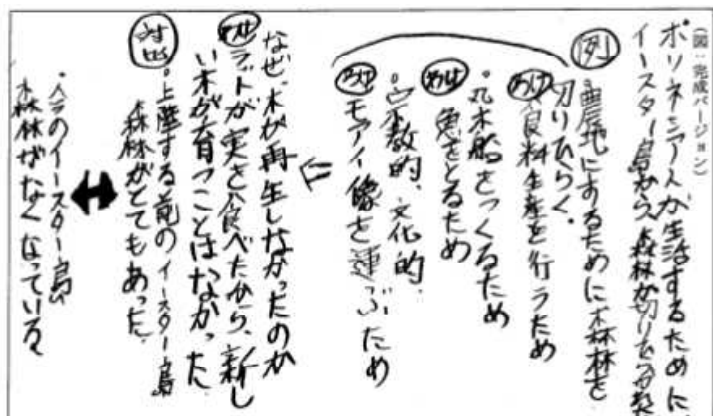 (図:完成バージョン)
ポリネシア人が生活するために、
イースター島から、森林が切りひらかれ
例
農地にするために森林を
切りひらく。
わけ
食料生産を行うため
・丸木船をつくるため
わけ
魚をとるため
・宗教的、文化的、
わけ
モアイ像を運ぶため
⇐
なぜ、木が再生しなかったのか
わけ
ラットが実を食べたから、新し
い木が育つことはなかった。
対比
・上陸する前のイースター島
森林がとてもあった。
↔
・今のイースター島
森林がなくなっている。